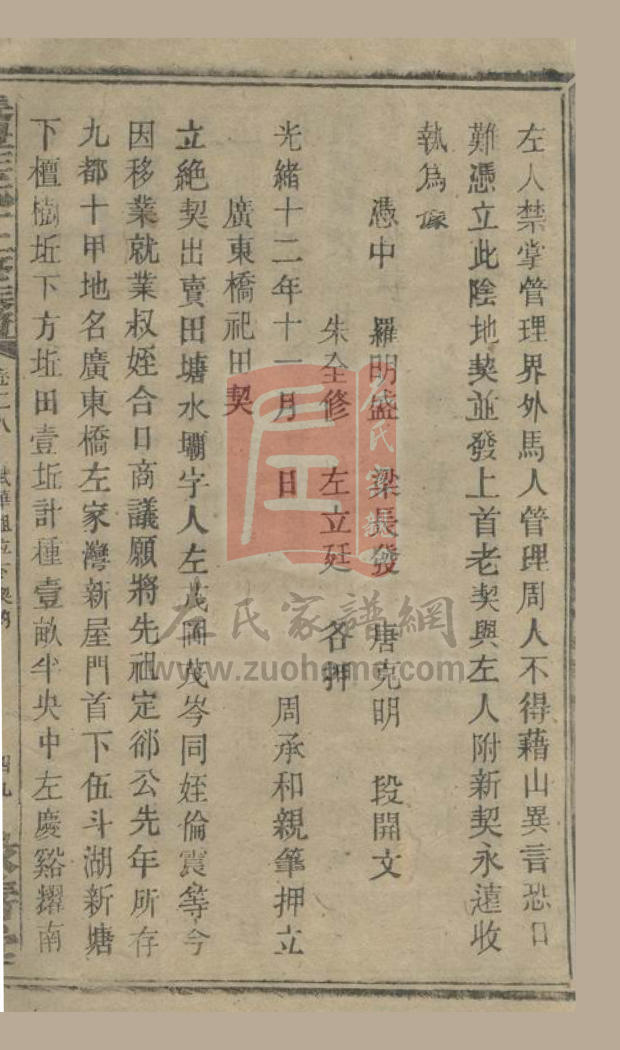 左人禁掌管理界外馬人管理周人不得藉山異言恐口
難憑立此陰地契並發上首老契與左人附新契永遠收
執為據
憑中　羅明盛　梁長發　唐克明　段開文
朱全修　左立廷　各押
光緒十二年十一月　日　周承和親筆押立
廣東橋祀田契
立絶契出賣田塘水壩字人左茂岡茂岑同姪倫震等今
因移業就業叔姪合口商議願將先祖定邰公先年所存
九都十甲地名廣東橋左家灣新屋門首下伍斗湖新塘
下檀樹坵下方坵田壹坵計種壹畝半央中左慶谿耀南
卷二八
四九
左氏家譜網
www.zuohome.com